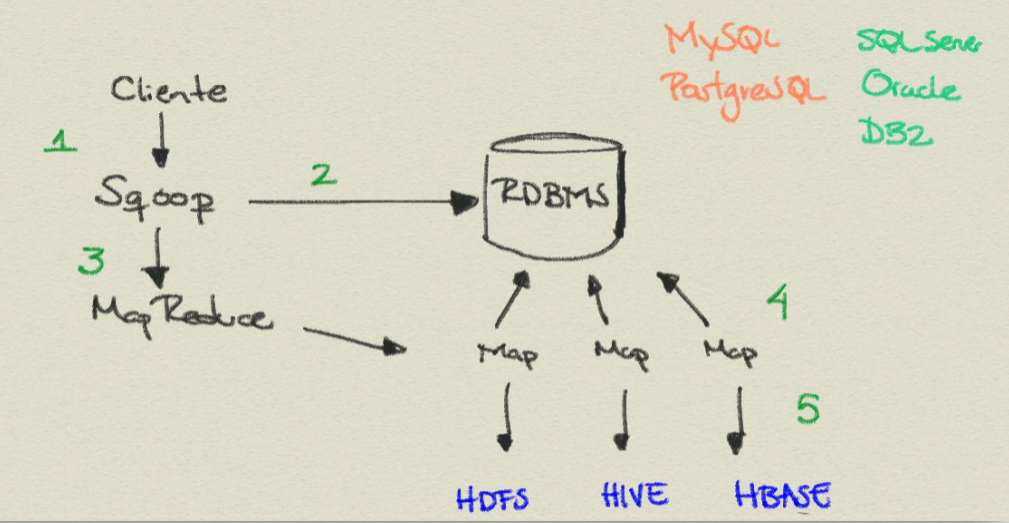 MySQL
PostgreSQL
SQLServer
Oracle
DB2
Cliente
1
Sqoop
2
RDBMS
3
MapReduce
4
Map Map Map
5
HDFS HIVE HBASE